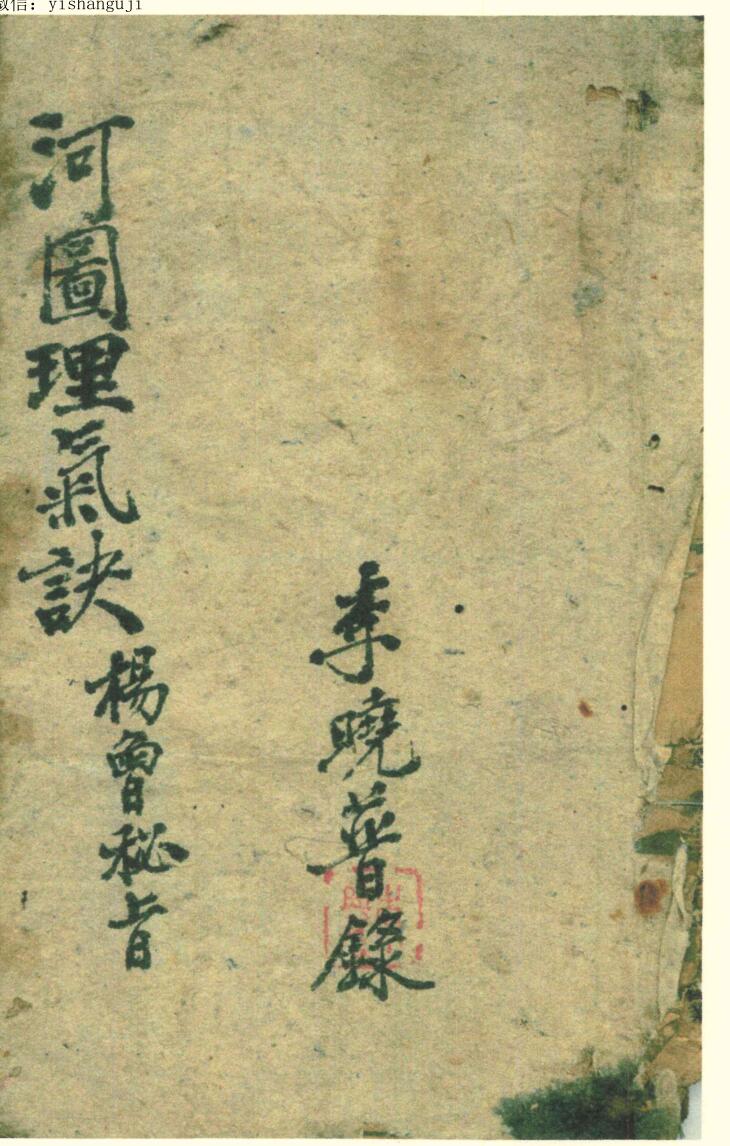 微信：yishanguji
河圖理氣訣
楊曾秘旨
李曉普錄